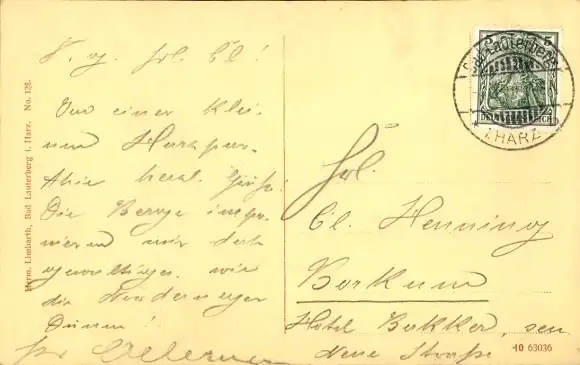 V. g. Frl. Cl!
Von einer klei-
nen Harzpar-
thie herzl. Grüße.
Die Berge impo-
nieren mir doch
gewaltiger wie
die Norderneyer
Dünen!
Frl.
Cl. Henning
Borkum
Hotel Bakker, sen.
Neue Straße
Bad Lauterberg
i. HARZ
Herm. Limbarth, Bad Lauterberg i. Harz. No. 128.
10 63036